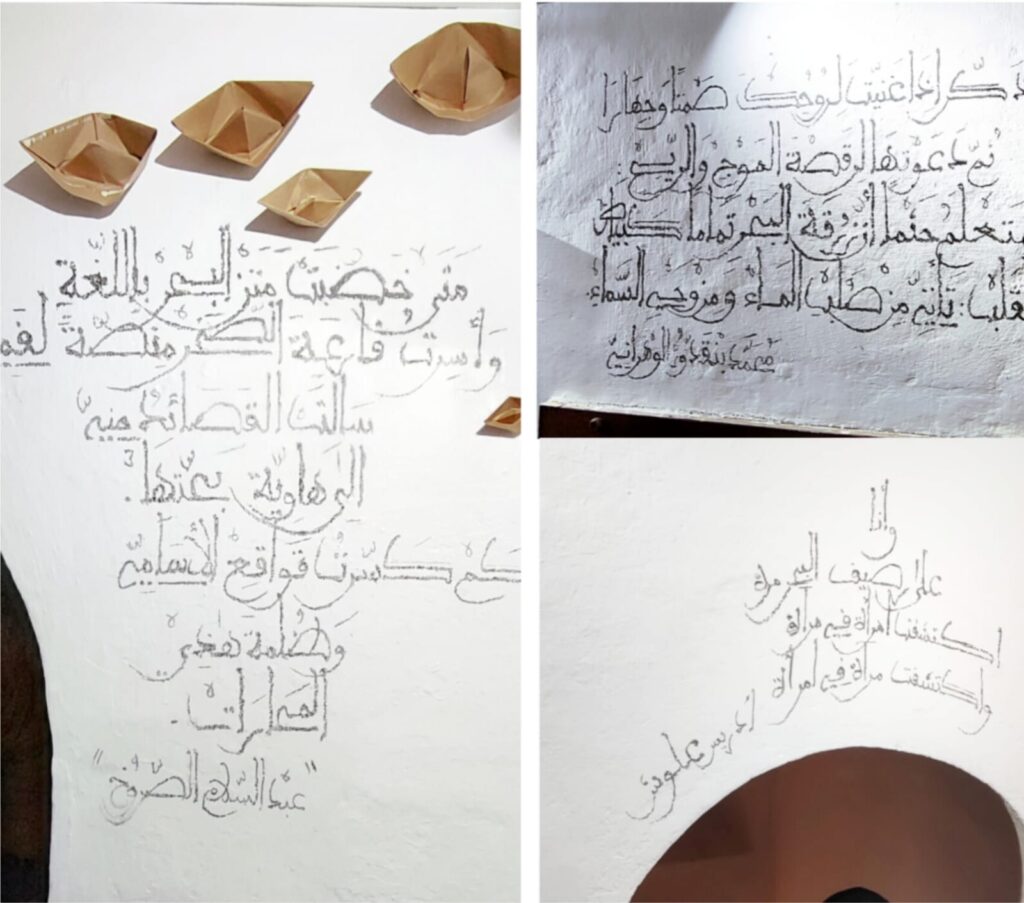 متى خصّبت متن البحر باللّغة
وأسرت فارعة الصّخر منصّة لغم
سالت القصائد منه
إلى هاوية بعتها.
كم كسّرت قواقع الأسامي
وظلمة تهذي
المدارات.
"عبد السّلام الصّروخ"
ذكّر إذا غنّيت لروحك صمتًا وجهارًا
ثمّ دعوتها لرقصة الموج والرّيح:
ستعلم حتمًا أنّ زرقة البحر تماما
القلب: تأتي من صُلب الماء ومن وجه السّماء.
محمّد بنقدّور الوهراني
وأنا
على صيف البحر مرة
اكتشفت امرأة في مرآة
واكتشفت مرآة في امرأة
إدريس علوش